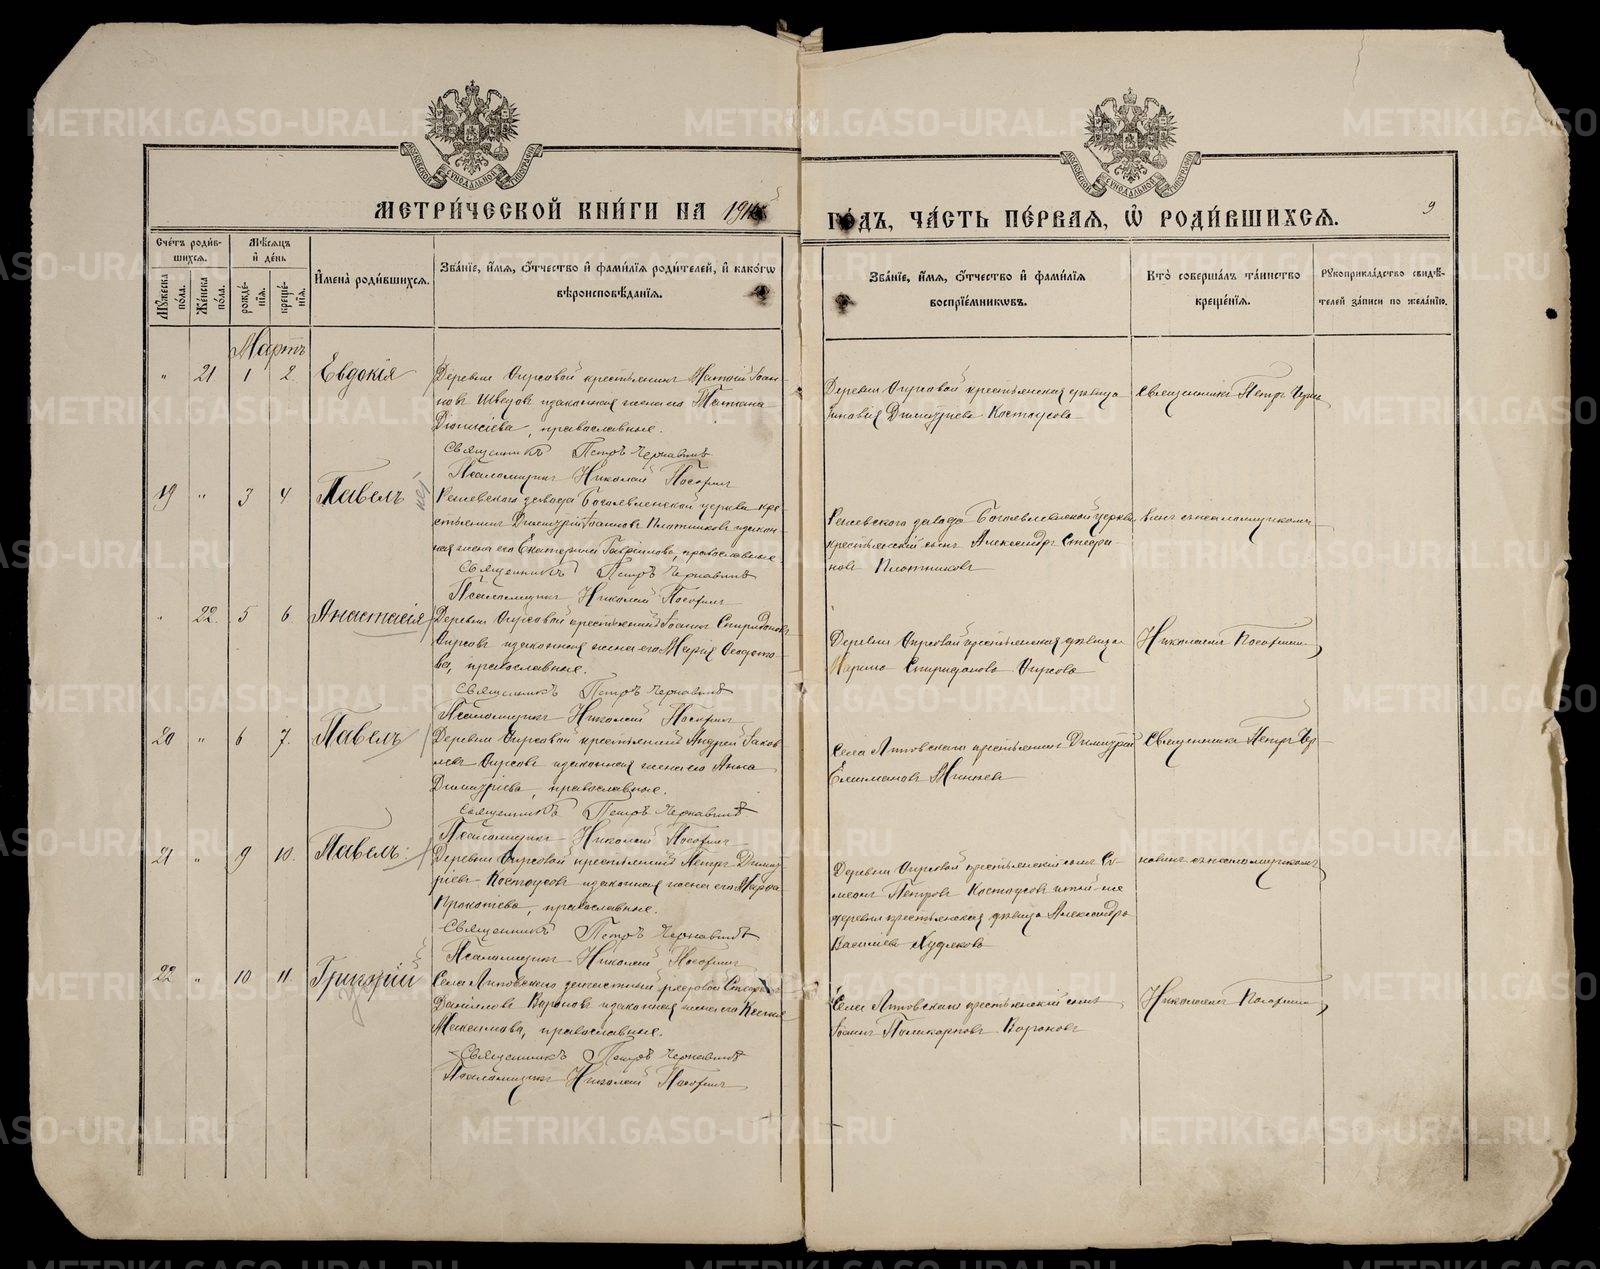 МОСКОВСКОЙ СѴНОДАЛЬНОЙ ТИПОГРАФІИ
МОСКОВСКОЙ СѴНОДАЛЬНОЙ ТИПОГРАФІИ
МЕТРИ́ЧЕСКОЙ КНИ́ГИ НА 191
ГО́ДЪ, ЧА́СТЬ ПЕ́РВАЯ, Ѡ҆ РОДИ́ВШИХСЯ.
9
Сче́тъ роди́в-
шихся.
Му́жеска по́ла.
Же́нска по́ла.
Мѣ́сяцъ
и҆ де́нь
рожде́-
нїя.
креще́-
нїя.
И҆мена̀ роди́вшихся.
Зва́нїе, и҆́мя, ѻ҆́тчество и҆ фами́лїя роди́телей, и҆ како́гѡ
вѣроисповѣ́данїя.
Зва́нїе, и҆́мя, ѻ҆́тчество и҆ фами́лїя
воспрїе́мниковъ.
Кто̀ соверша́лъ та́инство
креще́нїя.
Рукоприкла́дство свидѣ́-
телей за́писи по жела́нїю.
Мартъ
" 21 1 2 Евдокія
Деревни Фирсовой крестьянинъ Матѳій Іоан-
новъ Шведовъ и законная жена его Татіана
Діонисіева, православные.
Священникъ Петръ Чернавинъ
Псаломщикъ Николай Посохинъ
Деревни Фирсовой крестьянская дѣвица
Зиновія Димитріева Костоусова
Священникъ Петръ Черна
19 " 3 4 Павелъ
Режевского завода Богоявленской церкви кре-
стьянинъ Димитрій Іоанновъ Плотниковъ и закон-
ная жена его Екатерина Гавріилова, православные
Священникъ Петръ Чернавинъ
Псаломщикъ Николай Посохинъ
Режевского завода Богоявленской церкви
крестьянскій сынъ Александръ Стефа-
новъ Плотниковъ
винъ съ псаломщикомъ
" 22. 5 6 Анастасія
Деревни Фирсовой крестьянинъ Іоаннъ Спиридоновъ
Фирсовъ и законная жена его Марія Ѳеодото-
ва, православные.
Священникъ Петръ Чернавинъ
Псаломщикъ Николай Посохинъ
Деревни Фирсовой крестьянская дѣвица
Марина Спиридонова Фирсова
Николаемъ Посохинымъ
20 " 6 7. Павелъ
Деревни Фирсовой крестьянинъ Андрей Іаков-
левъ Фирсовъ и законная жена его Анна
Димитріева, православные.
Священникъ Петръ Чернавинъ
Псаломщикъ Николай Посохинъ
Села Липовскаго крестьянинъ Димитрій
Минѣевъ
Священникъ Петръ Чер-
21 " 9 10. Павелъ
Деревни Фирсовой крестьянинъ Петръ Димит-
ріевъ Костоусовъ и законная жена его Марѳа
Прокопіева, православные.
Священникъ Петръ Чернавинъ
Псаломщикъ Николай Посохинъ
Деревни Фирсовой крестьянскій сынъ Си-
меонъ Петровъ Костоусовъ и той-же
деревни крестьянская дѣвица Александра
Василіева Худякова
навинъ съ псаломщикомъ
22 " 10 11 Григорій
Села Липовскаго рядовой Стефанъ
Данииловъ Вороновъ и законная жена его Ксенія
Максимова, православные.
Священникъ Петръ Чернавинъ
Псаломщикъ Николай Посохинъ
Села Липовскаго крестьянскій сынъ
Іоаннъ Поликарповъ Вороновъ
Николаемъ Посохинымъ
METRIKI.GASO-URAL.RU